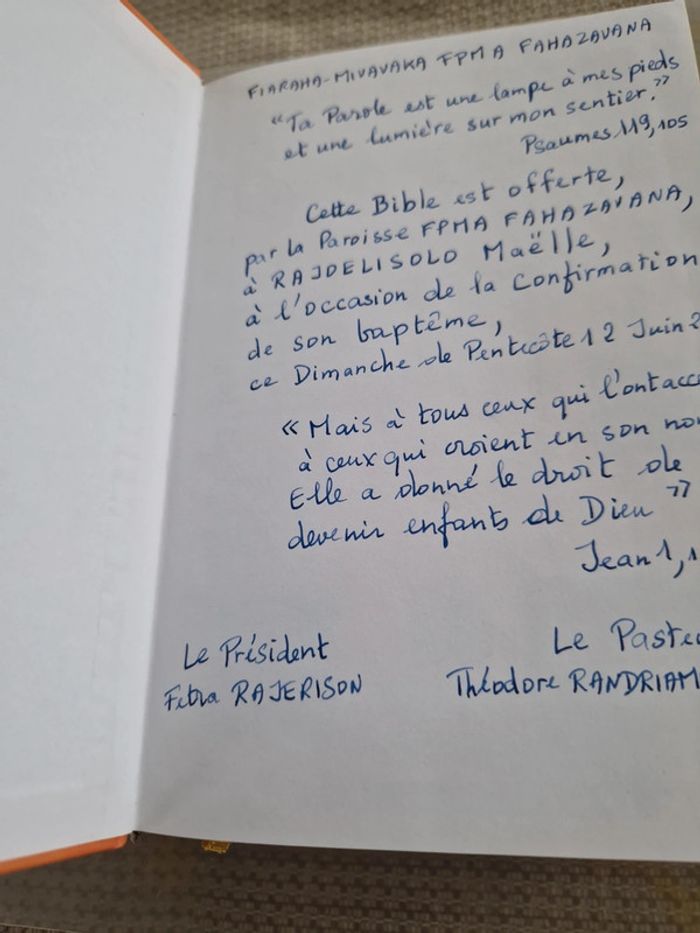 FIARAHA-MIVAVAKA FPMA FAHAZAVANA
"Ta Parole est une lampe à mes pieds
et une lumière sur mon sentier."
Psaumes 119,105
Cette Bible est offerte,
par la Paroisse FPMA FAHAZAVANA,
à RAJDELISOLO Maëlle,
à l'occasion de la Confirmation
de son baptême,
ce Dimanche de Pentecôte 12 Juin
« Mais à tous ceux qui l'ont
à ceux qui croient en son
Elle a donné le droit de
devenir enfants de Dieu »
Jean 1,
Le Président
Fetra RAJERISON
Le
Théodore